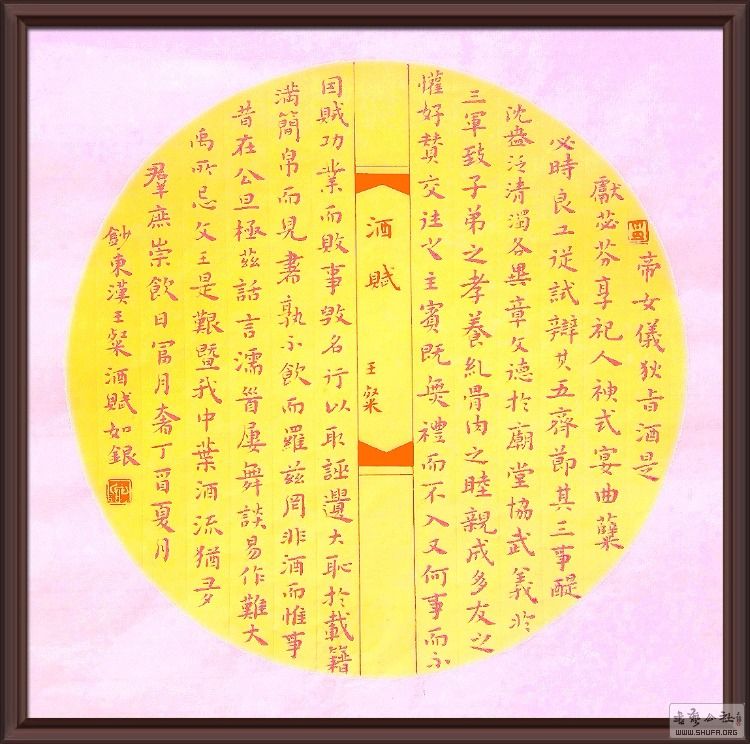 帝女儀狄旨酒是
獻苾芬享祀人神式宴曲蘖
必時良工從試辯其五齊節其三事醍
沈盎泛清濁各異章文德於廟堂協武義於
三軍致子弟之孝養糾骨肉之睦親成多友之
懽好贊交往之主賓既無禮而不入又何事而不
酒賦
王粲
因賊功業而敗事毀名行以取誣遺大恥於載籍
滿簡帛而見書孰不飲而羅茲罔非酒而惟事
昔在公旦極茲話言濡首屢舞談易作難大
禹所忌文王是艱暨我中葉酒流猶多
羣庶崇飲日富月奢丁酉夏月
鈔東漢王粲酒賦如銀
書藝公社
WWW.SHUFA.ORG